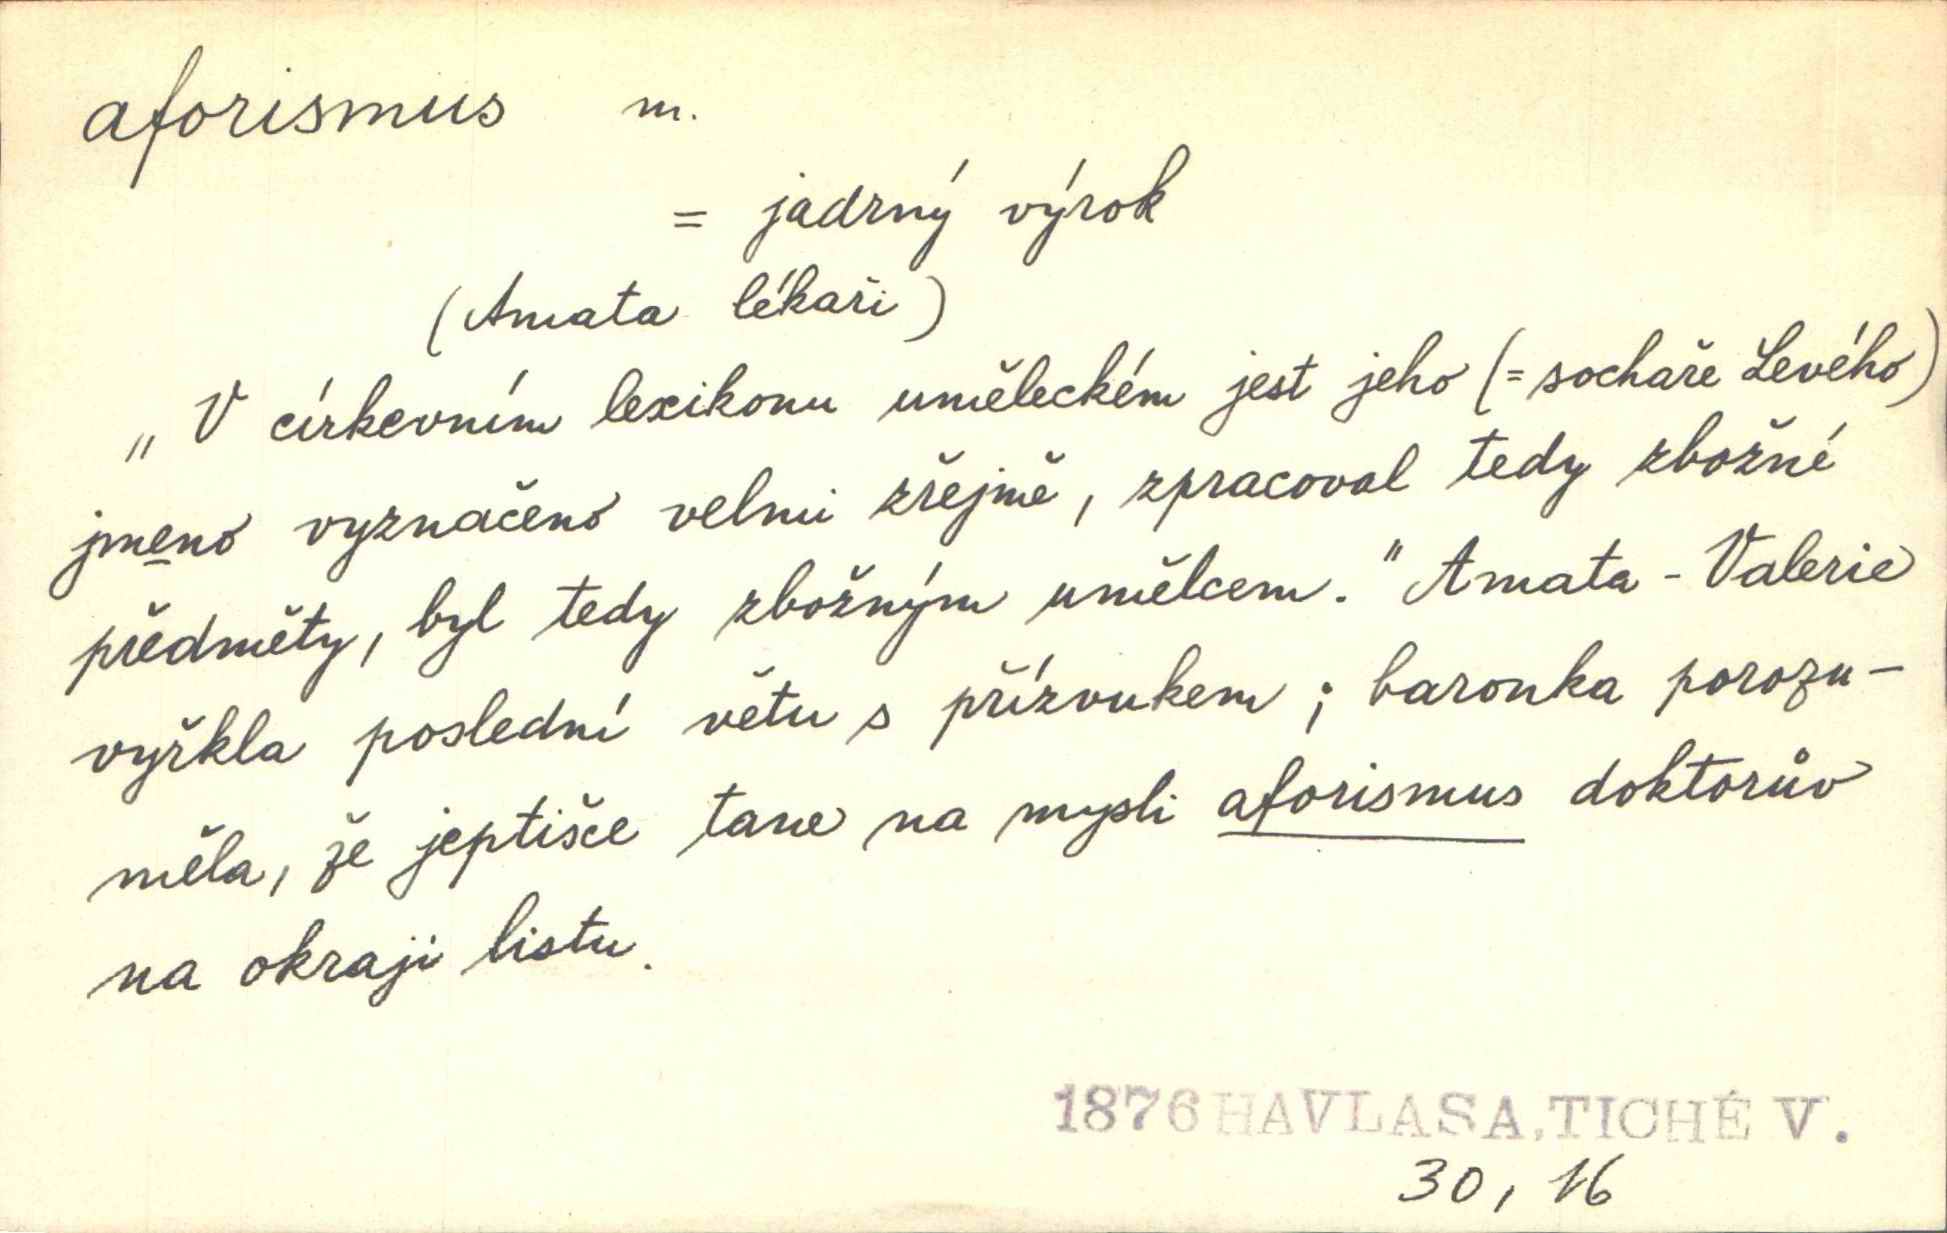 aforismus m.
= jadrný výrok
(Amata lékaři)
„V církevním lexikonu uměleckém jest jeho (= sochaře Levého)
jmeno vyznačeno velmi zřejmě, zpracoval tedy zbožné
předměty, byl tedy zbožným umělcem." Amata - Valerie
vyřkla poslední větu s přízvukem; baronka porozu-
měla, že jeptišce tane na mysli aforismus doktorův
na okraji listu.
1876 HAVLASA, TICHÉ V.
30, 16